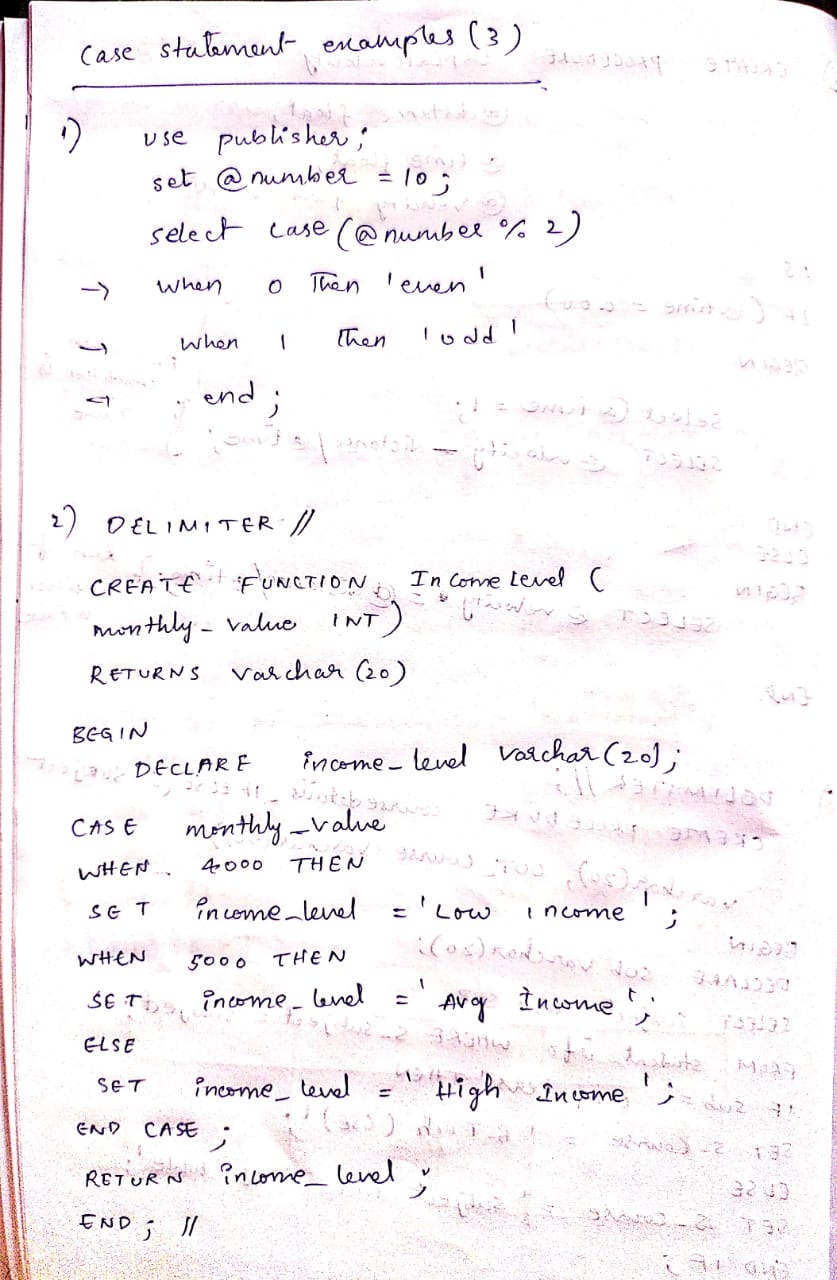 Case statement examples (3)
1) use publisher;
set @number = 10;
select case (@number % 2)
→ when 0 Then 'even'
→ when 1 then 'odd'
→ end;
2) DELIMITER //
CREATE FUNCTION Income Level (
monthly_value INT)
RETURNS varchar (20)
BEGIN
DECLARE income_level varchar (20);
CASE monthly_value
WHEN 4000 THEN
SET income_level = 'Low income';
WHEN 5000 THEN
SET income_level = 'Avg Income';
ELSE
SET income_level = 'High Income';
END CASE;
RETURN income_level;
END; //